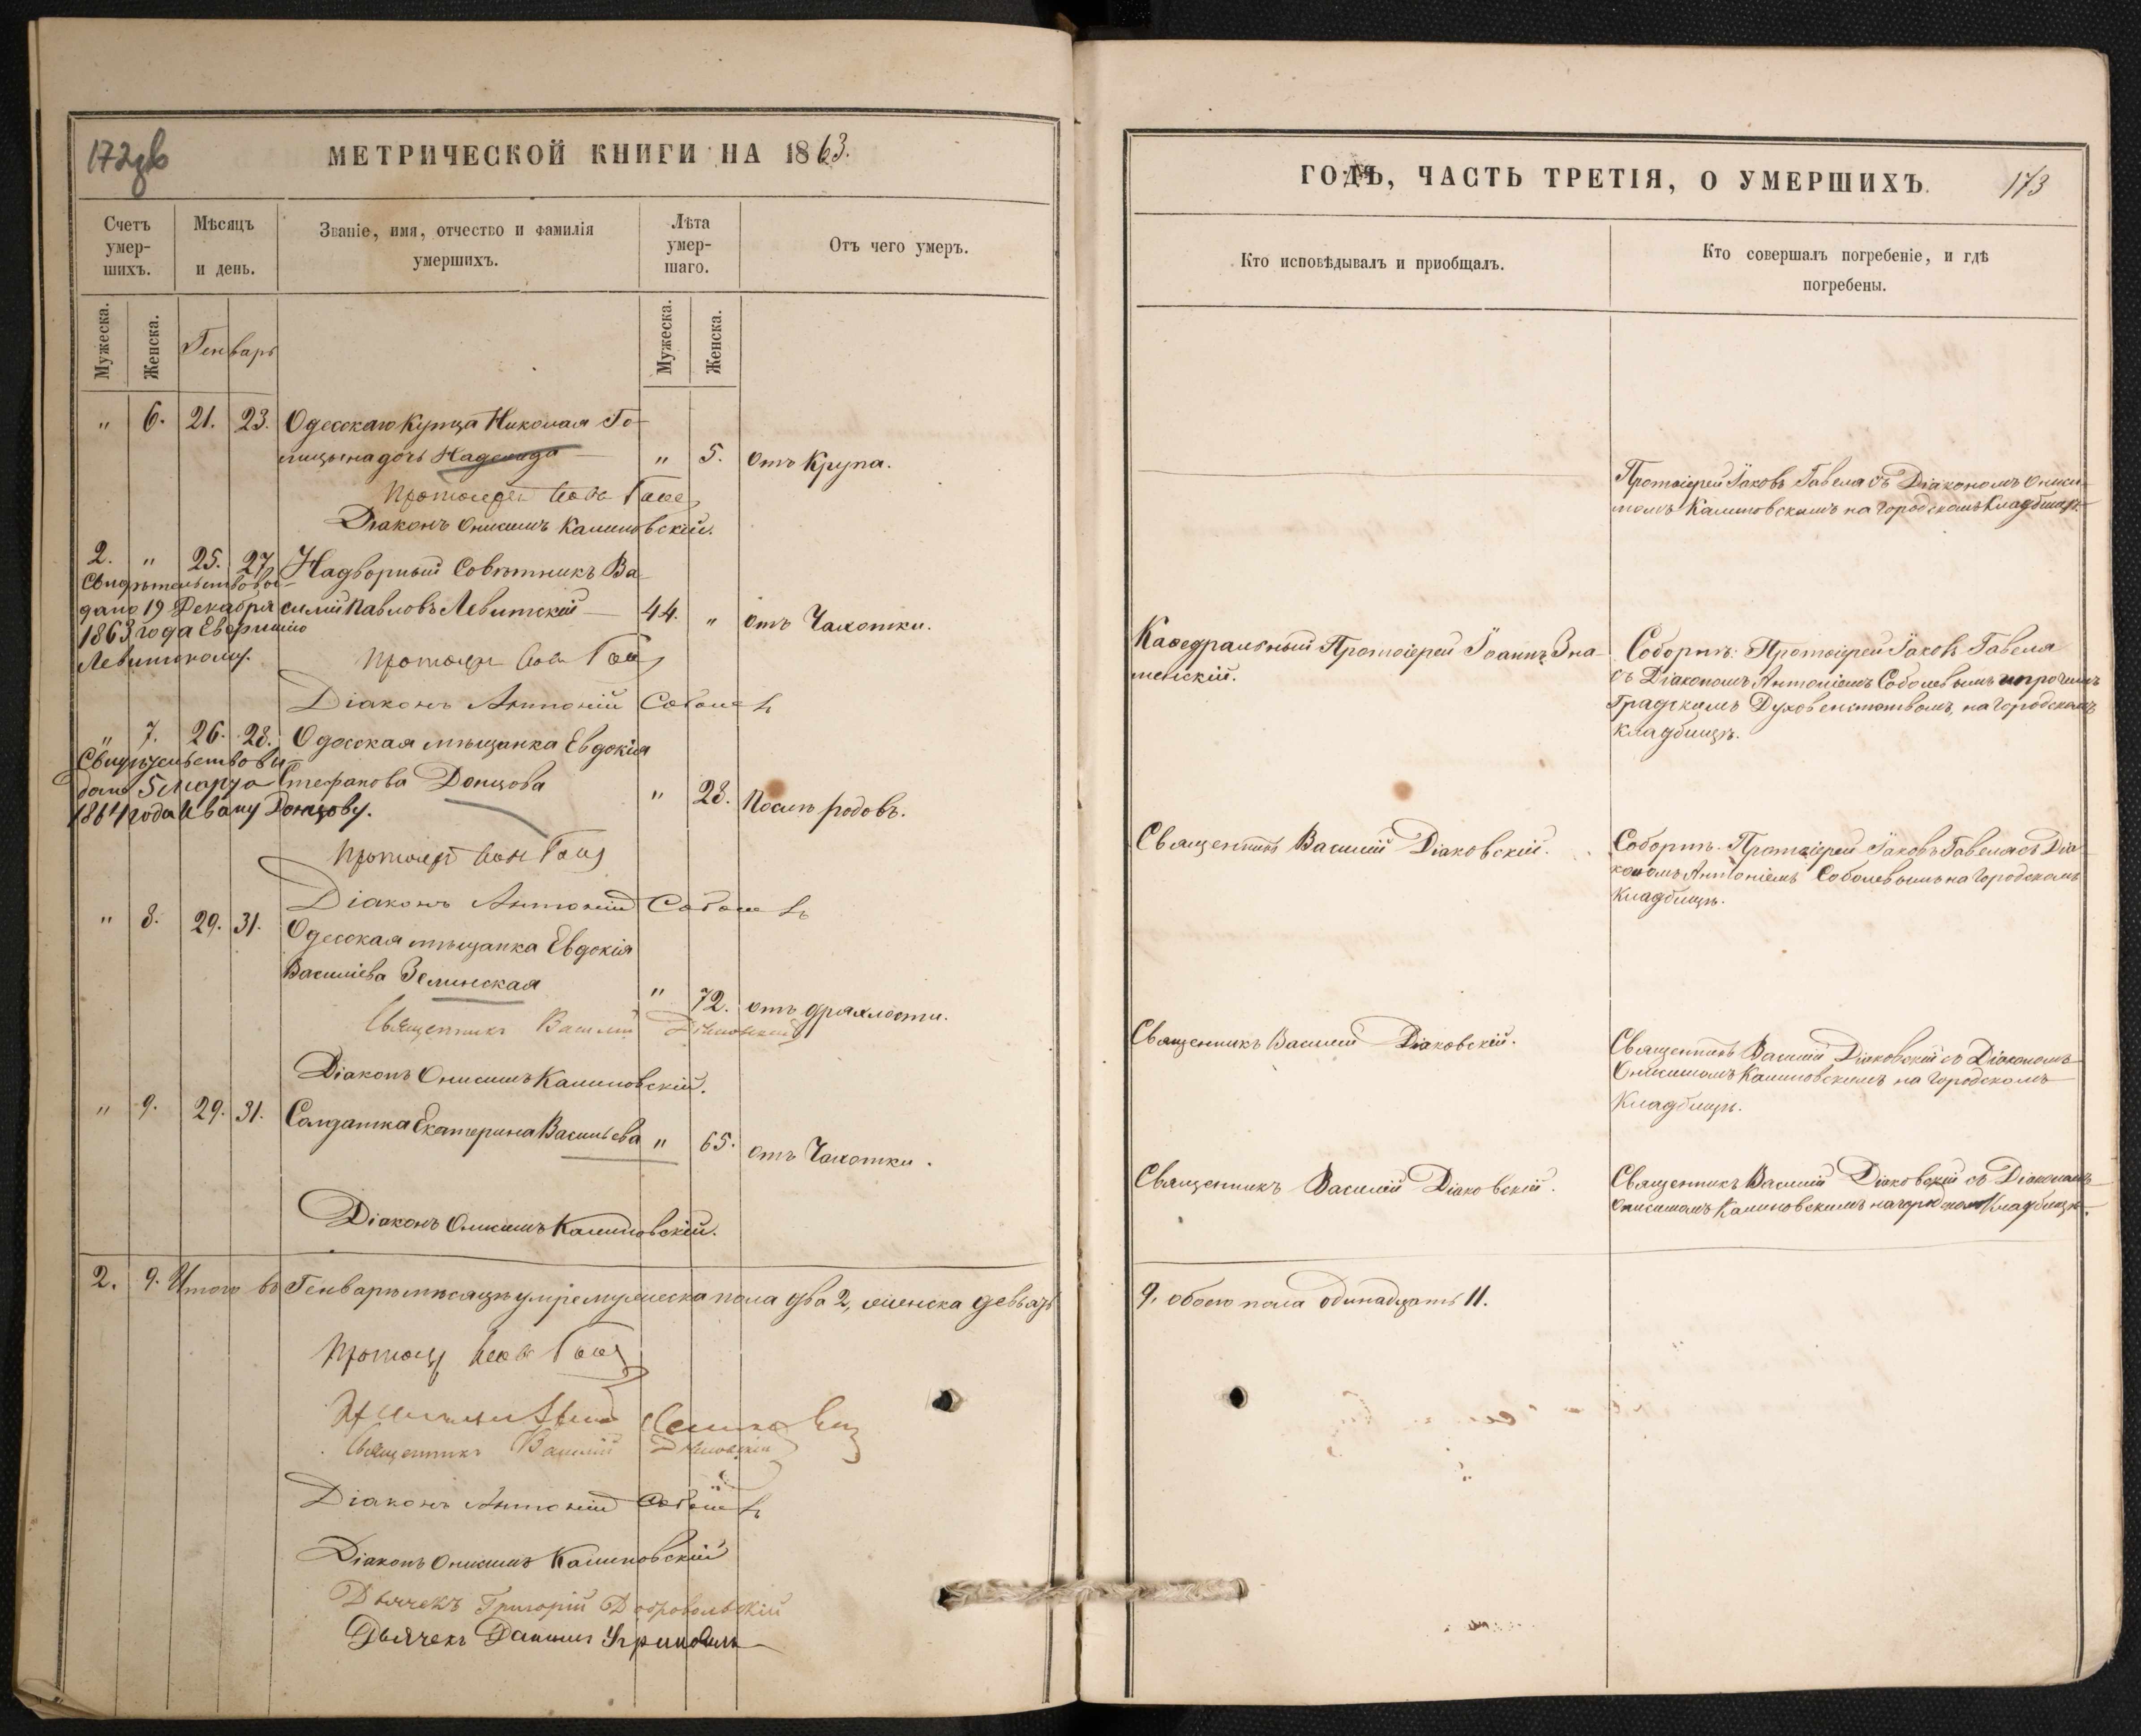 172зв
МЕТРИЧЕСКОЙ КНИГИ НА 1863.
Счетъ умер-шихъ.
Мѣсяцъ и день.
Званіе, имя, отчество и фамилія умершихъ.
Лѣта умер-шаго.
Отъ чего умеръ.
Мужеска.
Женска.
Генварь
Мужеска.
Женска.
" 6. 21. 23. Одесскаго Купца Николая Го-
лицына дочь Надежда " 5. отъ Крупа.
Протоіерей Іаковъ Гавел
Діаконъ Онисимъ Калиновскій.
2. " 25. 27. Надворный Совѣтникъ Ва-
силій Павловъ Левитскій 44. " отъ Чахотки.
Свидѣтельство вы-
дано 19 Декабря
1863 года
Левитскому.
Протоіерей Іаковъ Гавел
Діаконъ Антоній Соболевъ
" 7. 26. 28. Одесская мѣщанка Евдокія
Стефанова Донцова " 28. Послѣ родовъ.
Свидѣтельство вы-
дано 5 Марта
1864 года Ивану Донцову.
Протоіерей Іаковъ Гавел
Діаконъ Антоній Соболевъ
" 8. 29. 31. Одесская мѣщанка Евдокія
Василіева Зелинская " 72. отъ дряхлости.
Священникъ Василій Діаковскій
Діаконъ Онисимъ Калиновскій.
" 9. 29. 31. Солдатка Екатерина Васильева " 65. отъ Чахотки.
Діаконъ Онисимъ Калиновскій.
2. 9. Итого въ Генварѣ мѣсяцѣ умре мужеска пола два 2, женска девять
Протоіерей Іаковъ Гавел
Священникъ Василій Діаковскій
Діаконъ Антоній Соболевъ
Діаконъ Онисимъ Калиновскій
Дьячекъ Григорій Добровольскій
Дьячекъ Даніилъ
ГОДЪ, ЧАСТЬ ТРЕТІЯ, О УМЕРШИХЪ.
173
Кто исповѣдывалъ и пріобщалъ.
Кто совершалъ погребеніе, и гдѣ погребены.
Протоіерей Іаковъ Гавела съ Діакономъ Ониси-
момъ Калиновскимъ на Городскомъ Кладбищѣ.
Каѳедральный Протоіерей Іоаннъ Зна-
менскій.
Соборнѣ: Протоіерей Іаковъ Гавела
съ Діакономъ Антоніемъ Соболевымъ и прочимъ
Градскимъ Духовенствомъ, на Городскомъ
кладбищѣ.
Священникъ Василій Діаковскій.
Соборнѣ. Протоіерей Іаковъ Гавела съ Діа-
кономъ Антоніемъ Соболевымъ на Городскомъ
Кладбищѣ.
Священникъ Василій Діаковскій.
Священникъ Василій Діаковскій съ Діакономъ
Онисимомъ Калиновскимъ на Городскомъ
Кладбищѣ.
Священникъ Василій Діаковскій.
Священникъ Василій Діаковскій съ Діакономъ
Онисимомъ Калиновскимъ на городскомъ Кладбищѣ.
9. обоего пола одинадцать 11.